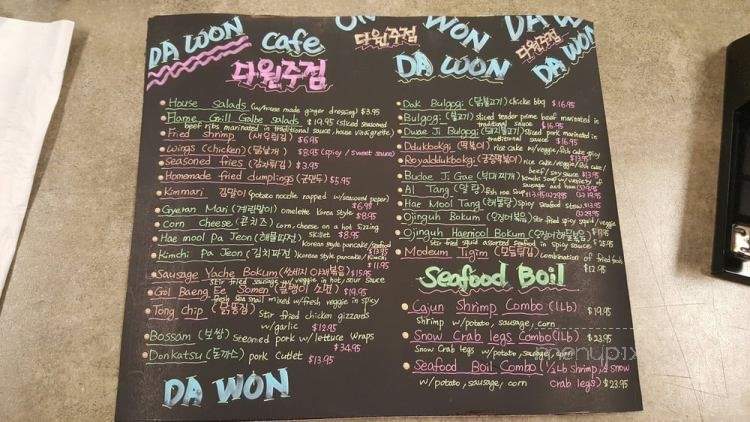 DA WON
Cafe
다원주점
다원주점
ON
WON
DA WON
다원주점
DA WON
DA WON
House Salads (w/house made ginger dressing) $3.95
Flame Grill Galbe salads $19.95 (sliced seasoned
beef ribs marinated in traditional sauce, house vinaigrette)
Fried Shrimp (새우튀김) $6.95
Wings (chicken) (닭날개) $8.95 (spicy / sweet sauce)
Seasoned fries (감자튀김) $3.95
Homemade fried dumplings (군만두) $5.95
Kimmari 김말이 (potato noodle rapped w/seaweed paper)
$6.95
Gyeran Mari (계란말이) omelette Korea style $8.95
Corn Cheese (콘치즈) corn, cheese on a hot sizzing
skillet $8.95
Hae mool Pa Jeon (해물파전) Korean style pancake/seafood
$13.95
Kimchi Pa Jeon (김치파전) Korean style pancake/Kimchi
$11.95
Sausage Yache Bokum (쏘세지 야채볶음) $15.95
Stir fried sausage w/veggie in hot/sour Sauce
Gol Baeng Ee Somen (골뱅이 소면) $19.95
fresh sea snail mixed w/fresh veggie in spicy
Tong Chip (닭똥집) stir fried chicken gizzards
w/garlic $12.95
Bossam (보쌈) steamed pork w/lettuce Wraps
$34.95
Donkatsu (돈까스) pork cutlet $13.95
DA WON
Dak Bulgogi (닭불고기) chicke bbq $16.95
Bulgogi (불고기) sliced tender prime beef marinated in
traditional sauce $16.95
Dwae Ji Bulgogi (돼지불고기) sliced pork marinated in
traditional sauce $16.95
Ddukbokgi (떡볶이) rice cake w/veggie/fish cake spicy
$13.95
Royalddukbokgi (궁중떡볶이) rice cake/veggie/fish cake/
beef/soy sauce $13.95
Budae Ji Gae (부대찌개) kimchi soup w/variety of
sausage and ham
Al Tang (알탕) fish roe soup
Hae Mool Tang (해물탕) spicy seafood stew
Ojinguh Bokum (오징어볶음) stir fried spicy squid/veggie
Ojinguh Haemool Bokum (오징어해물볶음)
stir fried squid assorted seafood in spicy sauce
Modeum Tigim (모듬튀김) combination of fried foods
$12.95
Seafood Boil
Cajun Shrimp Combo (1 Lb)
shrimp w/potato, sausage, corn $19.95
Snow Crab legs Combo (1 Lb)
Snow Crab legs w/potato, sausage $23.95
menupix
Seafood Boil Combo (½ Lb shrimp, ½ snow
w/potato, sausage, corn crab legs) $23.95